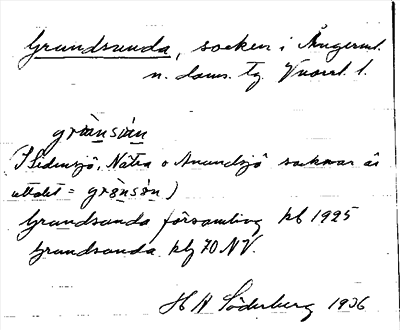 Grundsunda, socken i Ångerml.
n. doms. tg. Vnorrl. l.
grànsùn
(I Sidensjö, Nätra o Anundsjö socknar är
uttalet = grànsòn)
Grundsunda församling kb 1925
Grundsunda kbg 70 NV.
H N Söderberg 1936